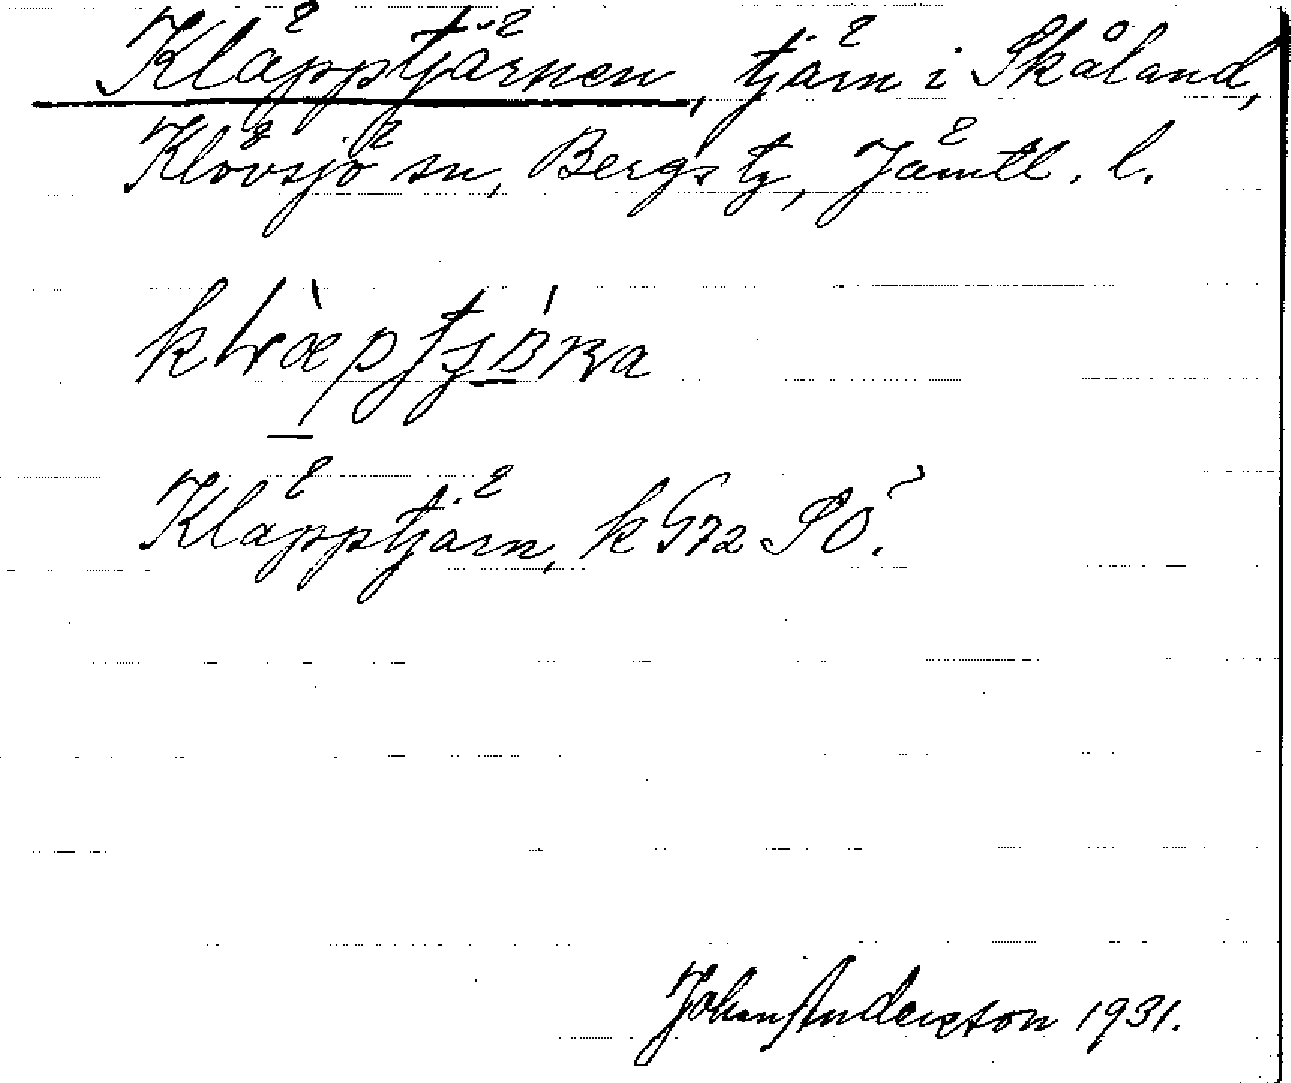 Kläpptjärnen, tjärn i Skåland,
Klövsjö sn, Bergs tg, Jämtl. l.
Kläpptjärn, k G72 SO.
Johan Anderson 1931.